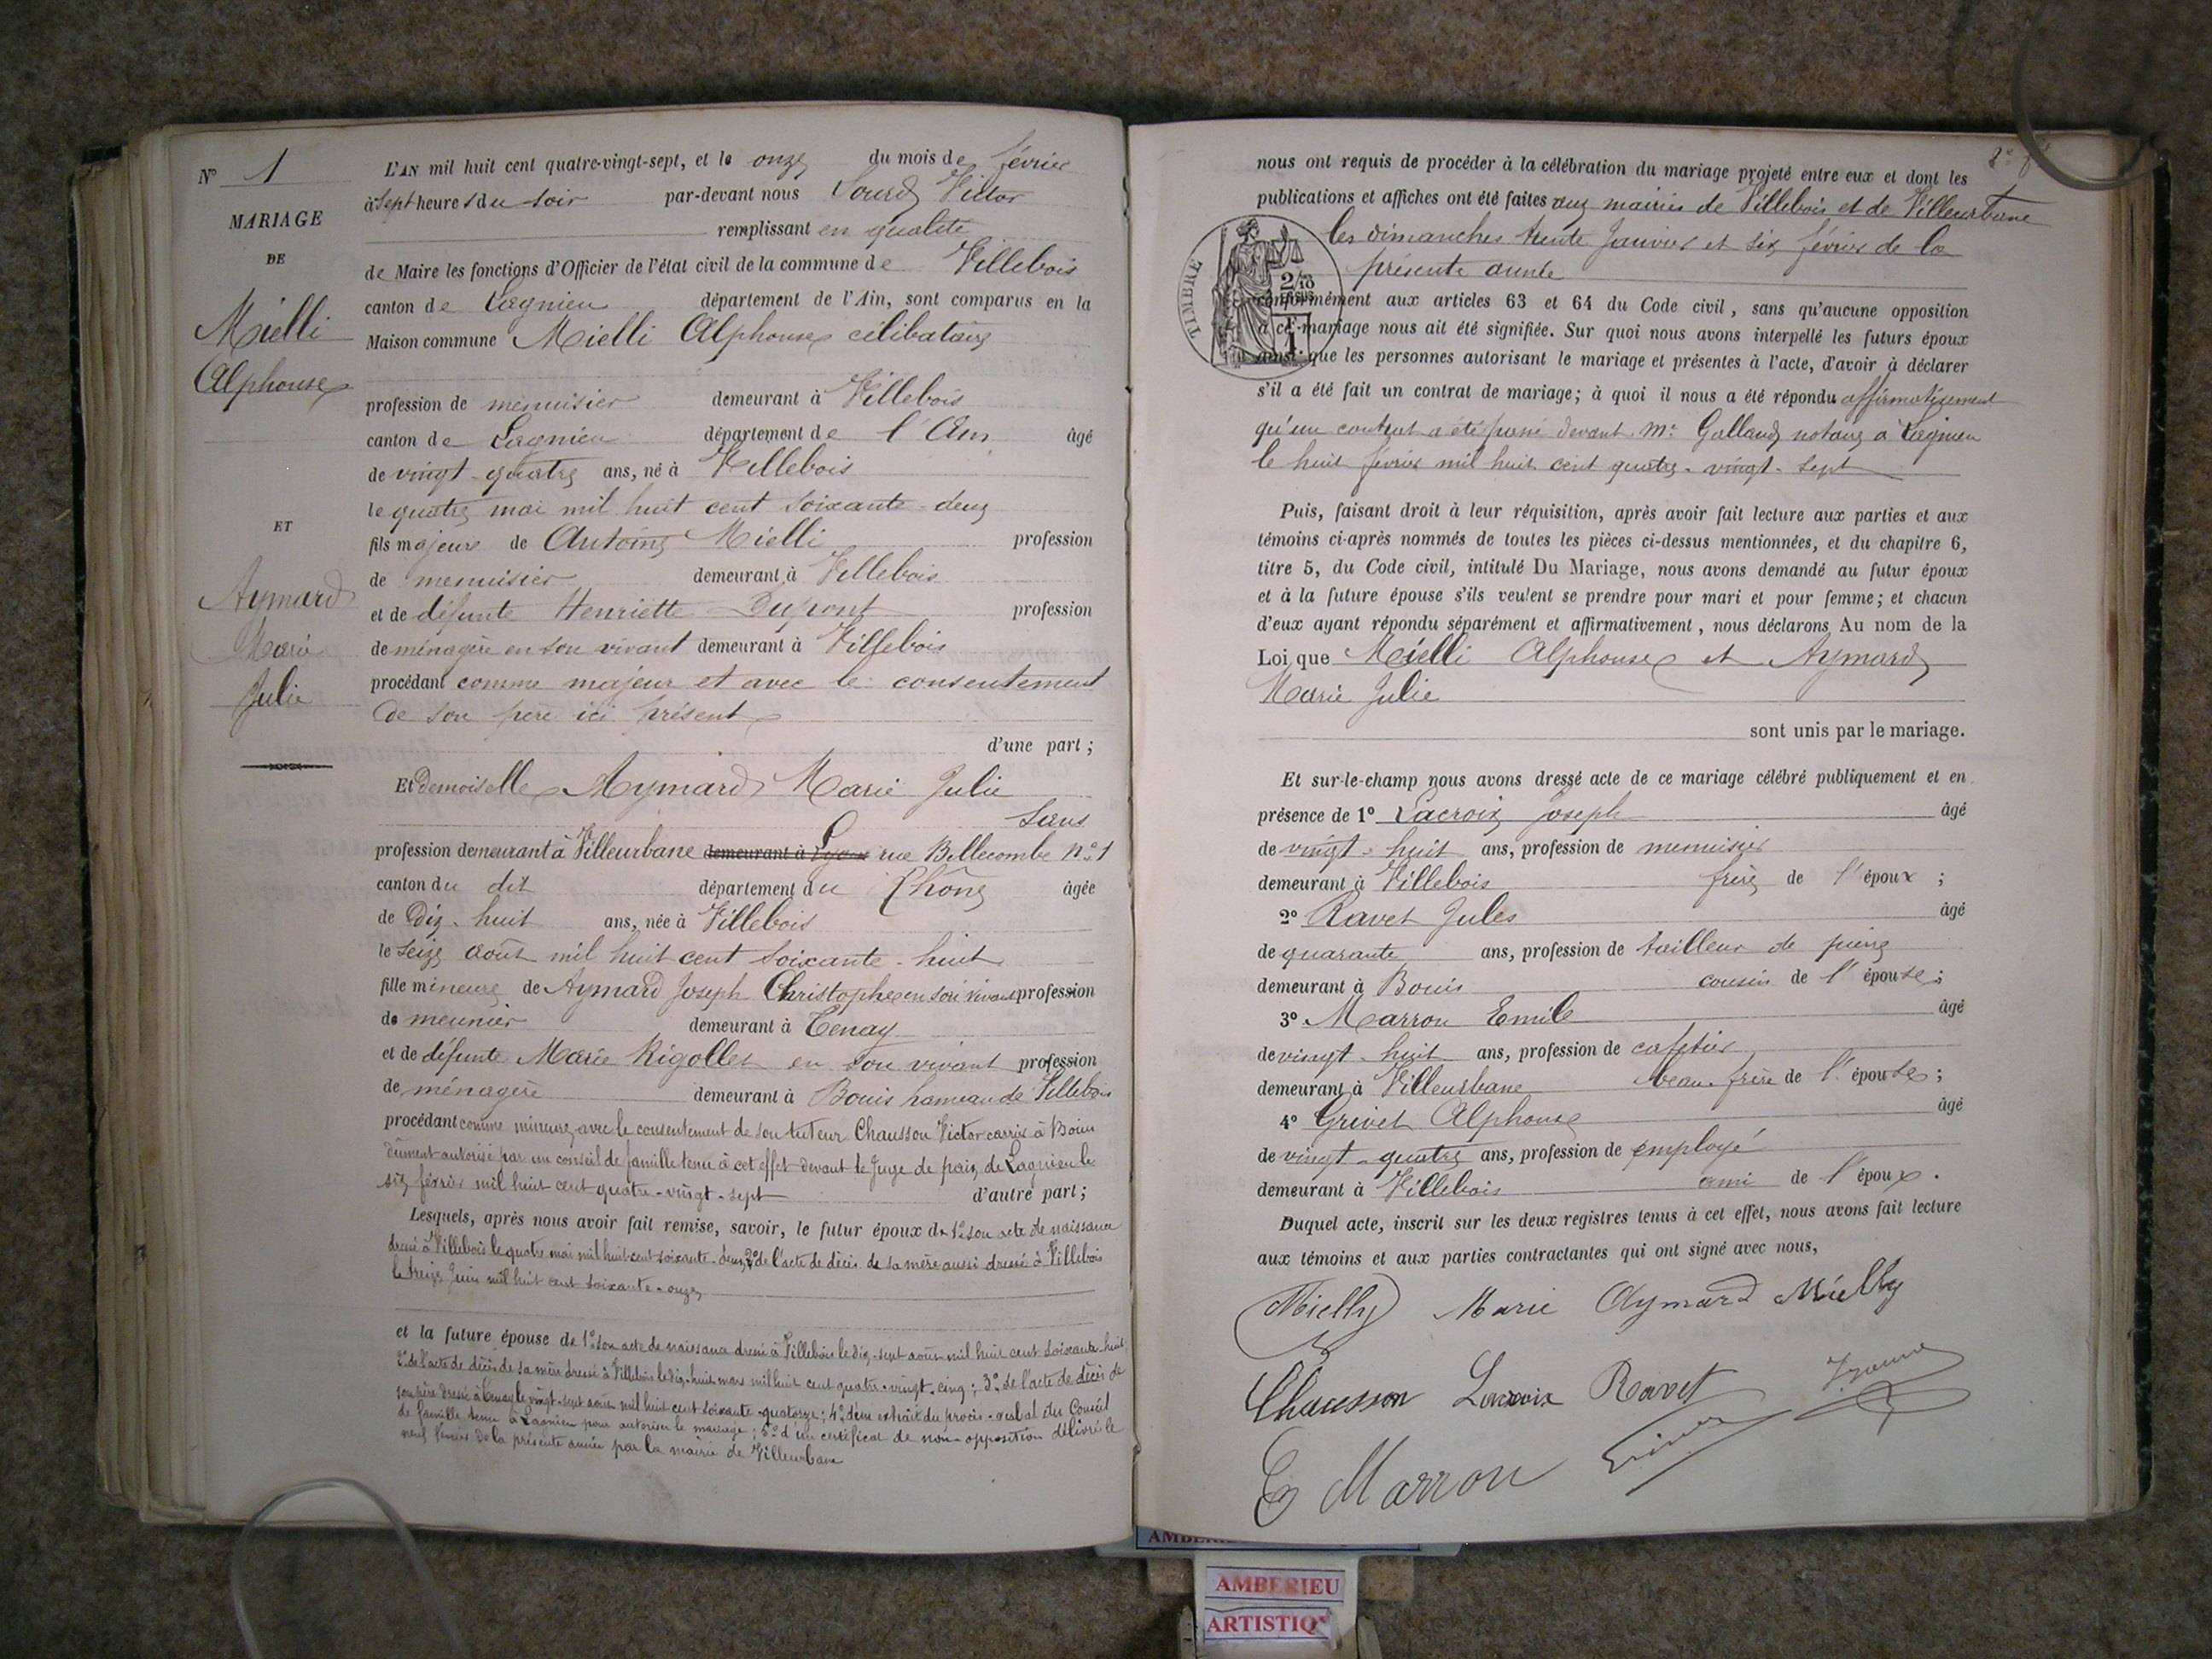 N° 1
MARIAGE
DE
Mielli
Alphonse
ET
Aymard
Marie
Julie
L'AN mil huit cent quatre-vingt-sept, et le onze du mois de février
à sept heures du soir par-devant nous Sourd Victor
remplissant en qualité
de Maire les fonctions d'Officier de l'état civil de la commune de Villebois
canton de Lagnieu département de l'Ain, sont comparus en la
Maison commune Mielli Alphonse célibataire
profession de menuisier demeurant à Villebois
canton de Lagnieu département de l'Ain âgé
de vingt-quatre ans, né à Villebois
le quatre mai mil huit cent soixante-deux
fils majeur de Antoine Mielli profession
de menuisier demeurant à Villebois
et de défunte Henriette Dupont profession
de ménagère en son vivant demeurant à Villebois
procédant comme majeur et avec le consentement
de son père ici présent
d'une part ;
Et Demoiselle Aymard Marie Julie
Sans
profession demeurant à Villeurbane demeurant à Lyon rue Bellecombe n° 1
canton du dit département du Rhône âgée
de Dix-huit ans, née à Villebois
le seize août mil huit cent soixante-huit
fille mineure de Aymard Joseph Christophe en son vivant profession
de meunier demeurant à Tenay
et de défunte Marie Rigollet en son vivant profession
de ménagère demeurant à Bouis hameau de Villebois
procédant comme mineure avec le consentement de son tuteur Chausson Victor carrier à Bouis
dûment autorisé par un conseil de famille tenu à cet effet devant le Juge de paix de Lagnieu le
six février mil huit cent quatre-vingt-sept d'autre part ;
Lesquels, après nous avoir fait remise, savoir, le futur époux de 1° son acte de naissance
dressé à Villebois le quatre mai mil huit cent soixante-deux, 2° de l'acte de décès de sa mère aussi dressé à Villebois
le treize Juin mil huit cent soixante-onze
et la future épouse de 1° son acte de naissance dressé à Villebois le dix-sept août mil huit cent soixante-huit
2° de l'acte de décès de sa mère dressé à Villebois le dix-huit mars mil huit cent quatre-vingt-cinq ; 3° de l'acte de décès de
son père dressé à Tenay le vingt-sept août mil huit cent soixante-quatorze ; 4° d'un extrait du procès-verbal du Conseil
de famille tenu à Lagnieu pour autoriser le mariage ; 5° d'un certificat de non-opposition délivré le
neuf février de la présente année par la mairie de Villeurbane
nous ont requis de procéder à la célébration du mariage projeté entre eux et dont les
publications et affiches ont été faites aux mairies de Villebois et de Villeurbane
les dimanches trente Janvier et six février de la
présente année
TIMBRE
2/10
conformément aux articles 63 et 64 du Code civil, sans qu'aucune opposition
à ce mariage nous ait été signifiée. Sur quoi nous avons interpellé les futurs époux
ainsi que les personnes autorisant le mariage et présentes à l'acte, d'avoir à déclarer
s'il a été fait un contrat de mariage ; à quoi il nous a été répondu affirmativement
qu'un contrat a été passé devant Me Galland notaire à Lagnieu
le huit février mil huit cent quatre-vingt-sept
Puis, faisant droit à leur réquisition, après avoir fait lecture aux parties et aux
témoins ci-après nommés de toutes les pièces ci-dessus mentionnées, et du chapitre 6,
titre 5, du Code civil, intitulé Du Mariage, nous avons demandé au futur époux
et à la future épouse s'ils veulent se prendre pour mari et pour femme ; et chacun
d'eux ayant répondu séparément et affirmativement, nous déclarons Au nom de la
Loi que Mielli Alphonse et Aymard
Marie Julie
sont unis par le mariage.
Et sur-le-champ nous avons dressé acte de ce mariage célébré publiquement et en
présence de 1° Lacroix Joseph âgé
de vingt-huit ans, profession de menuisier
demeurant à Villebois frère de l'époux ;
2° Ravet Jules âgé
de quarante ans, profession de tailleur de pierre
demeurant à Bouis cousin de l'épouse ;
3° Marron Emile âgé
de vingt-huit ans, profession de cafetier
demeurant à Villeurbane beau-frère de l'épouse ;
4° Grivet Alphonse âgé
de vingt-quatre ans, profession de employé
demeurant à Villebois ami de l'époux.
Duquel acte, inscrit sur les deux registres tenus à cet effet, nous avons fait lecture
aux témoins et aux parties contractantes qui ont signé avec nous,
Mielly Marie Aymard Mielly
Chausson Lacroix Ravet
E Marron
AMBERIEU
ARTISTIQ